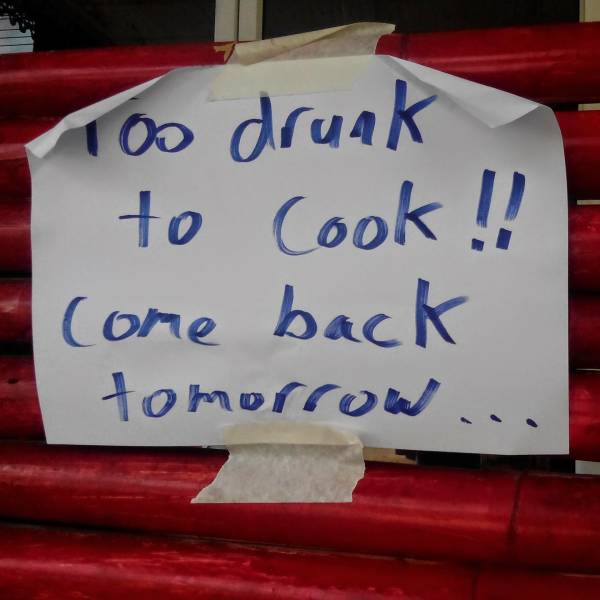 Too drunk
to Cook!!
Come back
tomorrow...